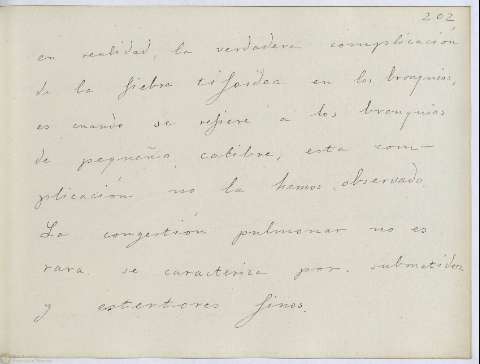 202
en realidad, la verdadera complicación
de la fiebre tifoidea en los bronquios,
es cuando se refiere á los bronquios
de pequeño calibre, esta com-
plicación no la hemos observado.
La congestión pulmonar no es
rara. se caracteriza por. submatidez
y estertores finos.